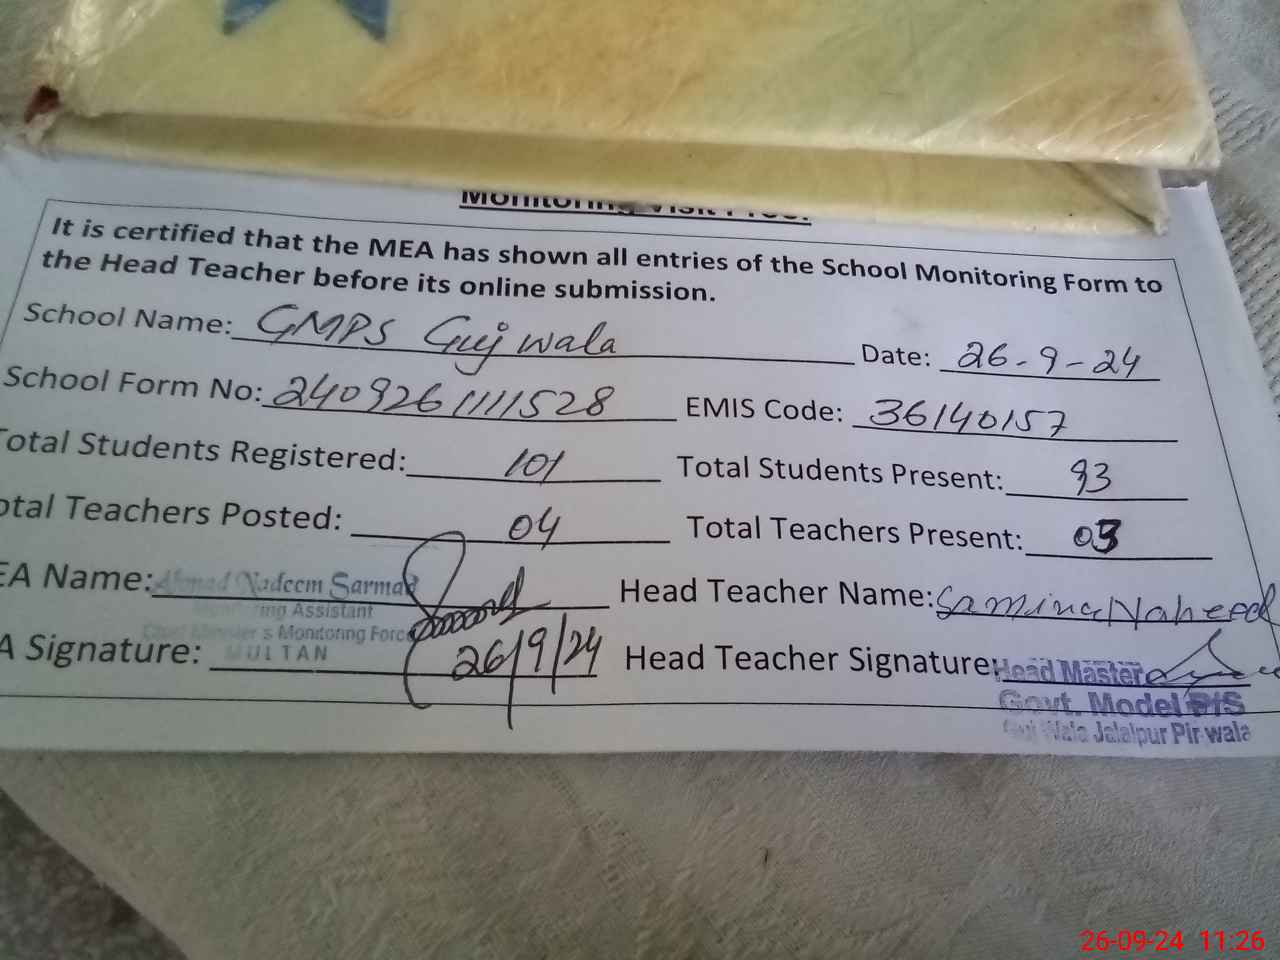 Monitoring Visit Proof
It is certified that the MEA has shown all entries of the School Monitoring Form to
the Head Teacher before its online submission.
School Name: GMPS Gujwala Date: 26-9-24
School Form No: 2409261111528 EMIS Code: 36140157
otal Students Registered: 101 Total Students Present: 93
otal Teachers Posted: 04 Total Teachers Present: 03
EA Name: Ahmad Nadeem Sarmad Head Teacher Name: Samina Naheed
Monitoring Assistant
Chief Minister's Monitoring Force
MULTAN
A Signature: 26/9/24 Head Teacher Signature:
Head Master
Govt. Model P/S
Guj Wala Jalalpur Pir wala
26-09-24 11:26